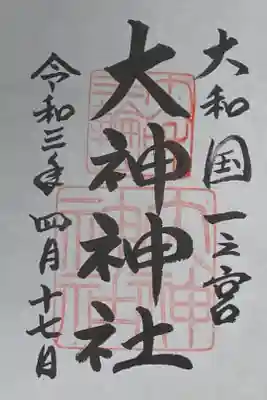 大和国一之宮
大神神社
令和三年四月十七日